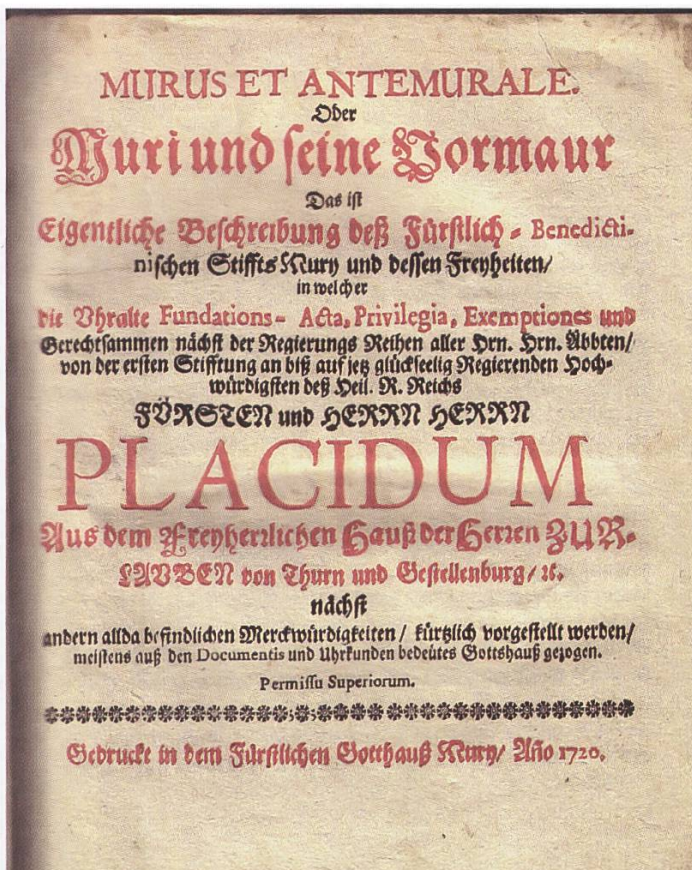 MURUS ET ANTEMURALE.
Oder
Muri und seine Vormaur
Das ist
Eigentliche Beschreibung deß Fürstlich- Benedicti-
nischen Stiffts Mury und dessen Freyheiten/
in welcher
die Vhralte Fundations- Acta, Privilegia, Exemptiones und
Gerechtsammen nächst der Regierungs Reihen aller Hrn. Hrn. Äbbten/
von der ersten Stifftung an biß auf jetz glückseelig Regierenden Hoch-
würdigsten deß Heil. R. Reichs
FÜRSTEN und HERRN HERRN
PLACIDUM
Aus dem Freyherrlichen Hauß der Herren ZUR-
LAUBEN von Thurn und Gestellenburg/ ꝛc.
nächst
andern allda befindlichen Merckwürdigkeiten / kürtzlich vorgestellt werden/
meistens auß den Documentis und Uhrkunden bedeütes Gottshauß gezogen.
Permissu Superiorum.
Gedruckt in dem Fürstlichen Gotthauß Mury/ Año 1720.